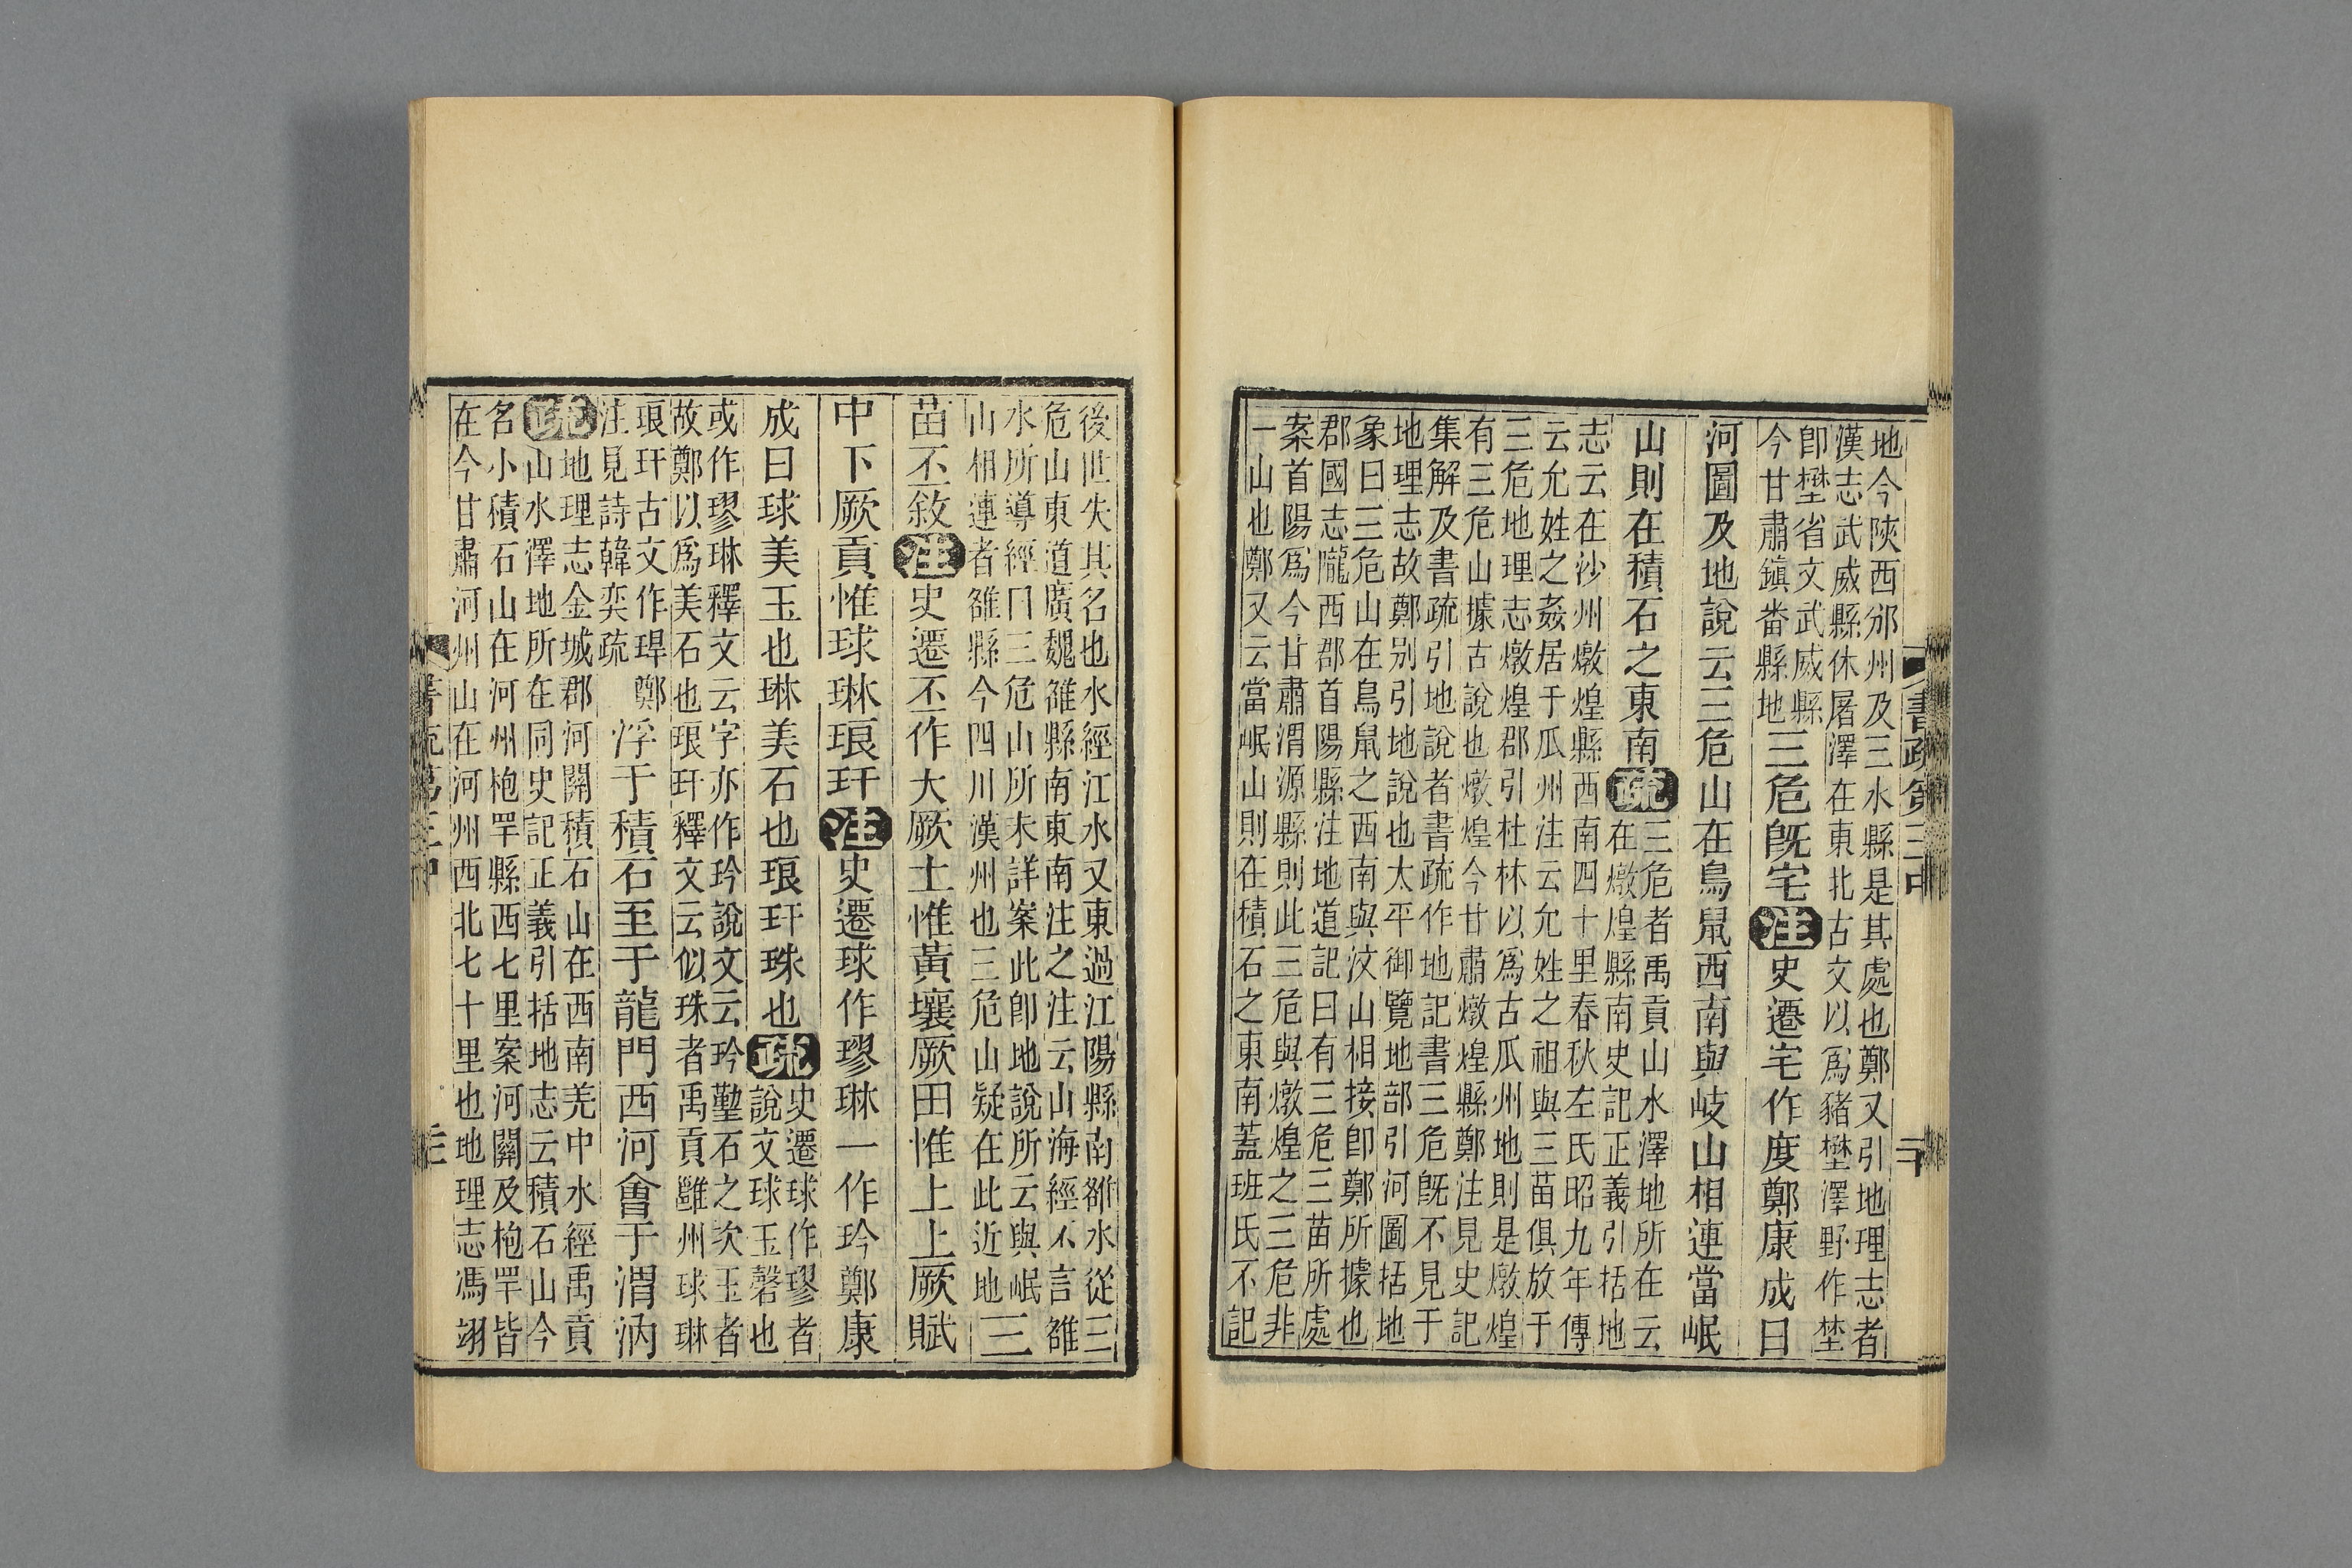 地今陝西邠州及三水縣是其處也鄭又引地理志者
漢志武威縣休屠澤在東北古文以爲豬壄澤野作埜
卽壄省文武威縣
今甘肅鎮番縣地
三危旣宅注史遷宅作度鄭康成曰
河圖及地說云三危山在鳥鼠西南與岐山相連當岷
山則在積石之東南疏
三危者禹貢山水澤地所在云
在燉煌縣南史記正義引括地
志云在沙州燉煌縣西南四十里春秋左氏昭九年傳
云允姓之姦居于瓜州注云允姓之祖與三苗俱放于
三危地理志燉煌郡引杜林以爲古瓜州地則是燉煌
有三危山據古說也燉煌今甘肅燉煌縣鄭注見史記
集解及書疏引地說者書疏作地記書三危旣不見于
地理志故鄭別引地說也太平御覽地部引河圖括地
象曰三危山在鳥鼠之西南與汶山相接卽鄭所據也
郡國志隴西郡首陽縣注地道記曰有三危三苗所處
案首陽爲今甘肅渭源縣則此三危與燉煌之三危非
一山也鄭又云當岷山則在積石之東南蓋班氏不記
書疏第三中
二十
後世失其名也水經江水又東過江陽縣南雒水從三
危山東道廣魏雒縣南東南注之注云山海經不言雒
水所導經曰三危山所未詳案此卽地說所云與岷
山相連者雒縣今四川漢州也三危山疑在此近地
三
苗丕敘注史遷丕作大厥土惟黃壤厥田惟上上厥賦
中下厥貢惟球琳琅玕注史遷球作璆琳一作玪鄭康
成曰球美玉也琳美石也琅玕珠也疏
史遷球作璆者
說文球玉磬也
或作璆琳釋文云字亦作玪說文云玪㻫石之次玉者
故鄭以爲美石也琅玕釋文云似珠者禹貢雝州球琳
琅玕古文作㻔鄭
注見詩韓奕疏
浮于積石至于龍門西河會于渭汭
疏
地理志金城郡河關積石山在西南羌中水經禹貢
山水澤地所在同史記正義引括地志云積石山今
名小積石山在河州枹罕縣西七里案河關及枹罕皆
在今甘肅河州山在河州西北七十里也地理志馮翊